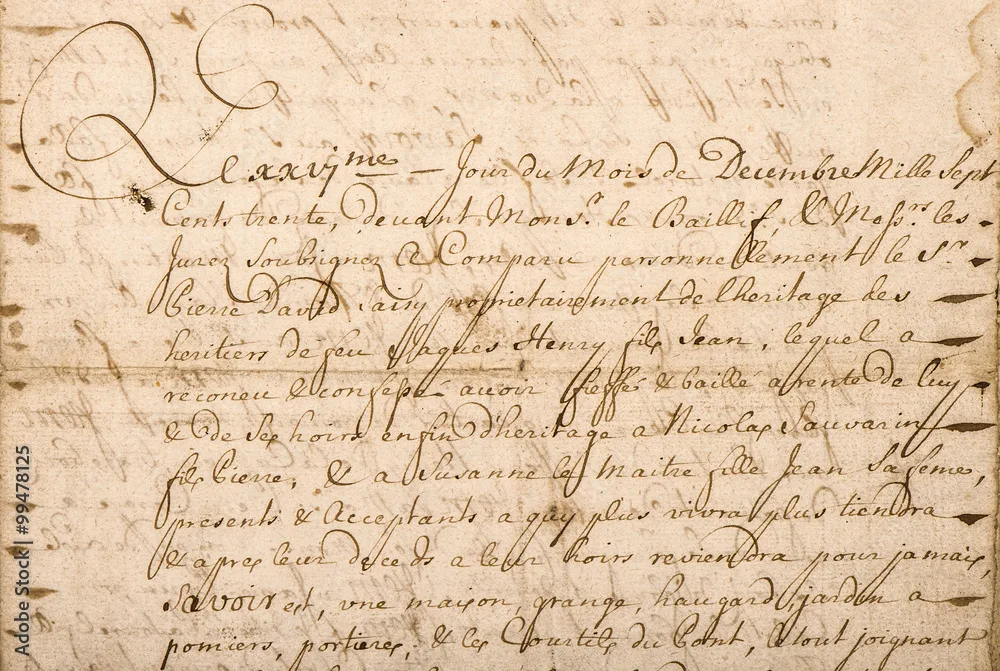 Le xxvj me — Jour du Mois de Decembre Mille Sept
Cents trente, devant Mons.r le Baillif, & Mess.rs les
Jurez Soubsignez Est Comparu personnellement le S.r
Pierre David Lainy proprietairement de l'heritage des
heritiers de feu Jaques Henry fils Jean, lequel a
reconeu & confessé avoir fieffé & baillé a rente de luy
& de Ses hoirs enfin d'heritage a Nicolas Sauvarin
fils Pierre, & a Susanne le Maitre fille Jean Sa feme,
presents & Acceptants a quy plus vivra plus tiendra
& apres leur deceds a leur hoirs reviendra pour jamais,
Savoir est, une maison, grange, haugard, jardin a
pomiers, portieres, & les Courtils du Pont, le tout joignant
Adobe Stock | #99478125